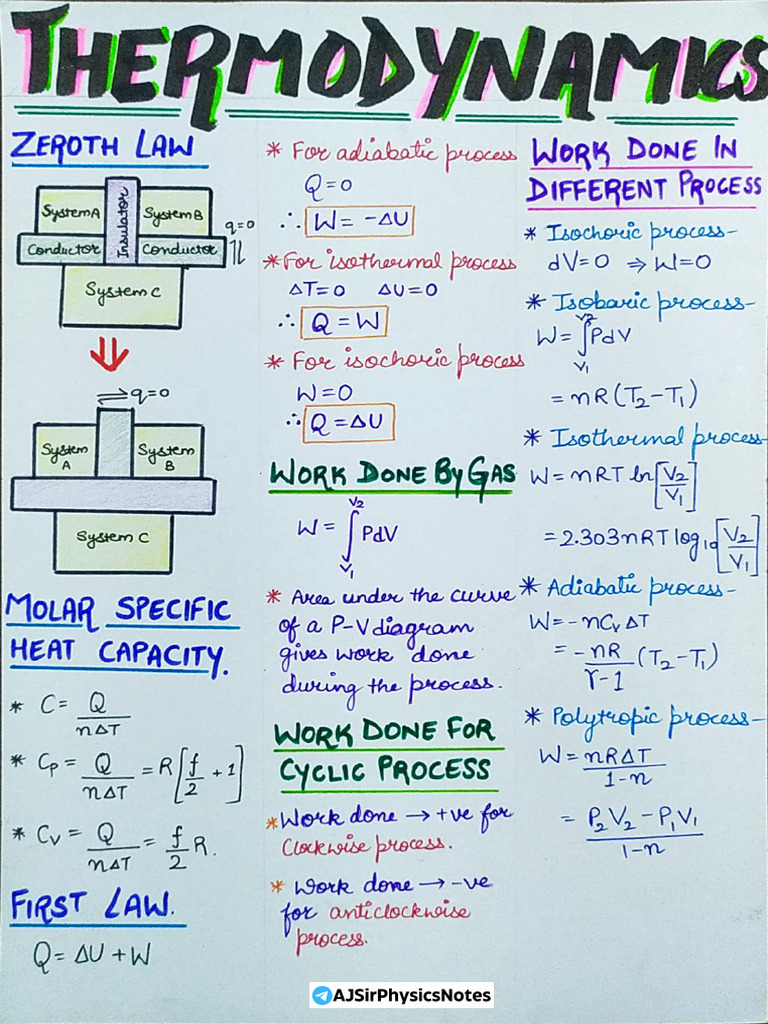 THERMODYNAMICS
ZEROTH LAW
System A
Insulator
System B
q=0
Conductor
Conductor
System C
⇌q=0
System
A
System
B
System C
MOLAR SPECIFIC
HEAT CAPACITY.
* C = Q/nΔT
* Cp = Q/nΔT = R[f/2 + 1]
* Cv = Q/nΔT = f/2 R.
FIRST LAW.
Q = ΔU + W
* For adiabatic process
Q = 0
∴ W = -ΔU
* For isothermal process
ΔT=0 ΔU=0
∴ Q = W
* For isochoric process
W=0
∴ Q = ΔU
WORK DONE BY GAS
W = ∫V₁V₂ PdV
* Area under the curve
of a P-V diagram
gives work done
during the process.
WORK DONE FOR
CYCLIC PROCESS
* Work done → +ve for
Clockwise process.
* Work done → -ve
for anticlockwise
process.
WORK DONE IN
DIFFERENT PROCESS
* Isochoric process-
dV=0 ⇒ W=0
* Isobaric process-
W = ∫V₁V₂ PdV
= nR(T₂-T₁)
* Isothermal process-
W = nRT ln[V₂/V₁]
= 2.303nRT log₁₀[V₂/V₁]
* Adiabatic process-
W = -nCv ΔT
= -nR/γ-1 (T₂-T₁)
* Polytropic process-
W = nRΔT/1-n
= P₂V₂ - P₁V₁/1-n
AJSirPhysicsNotes